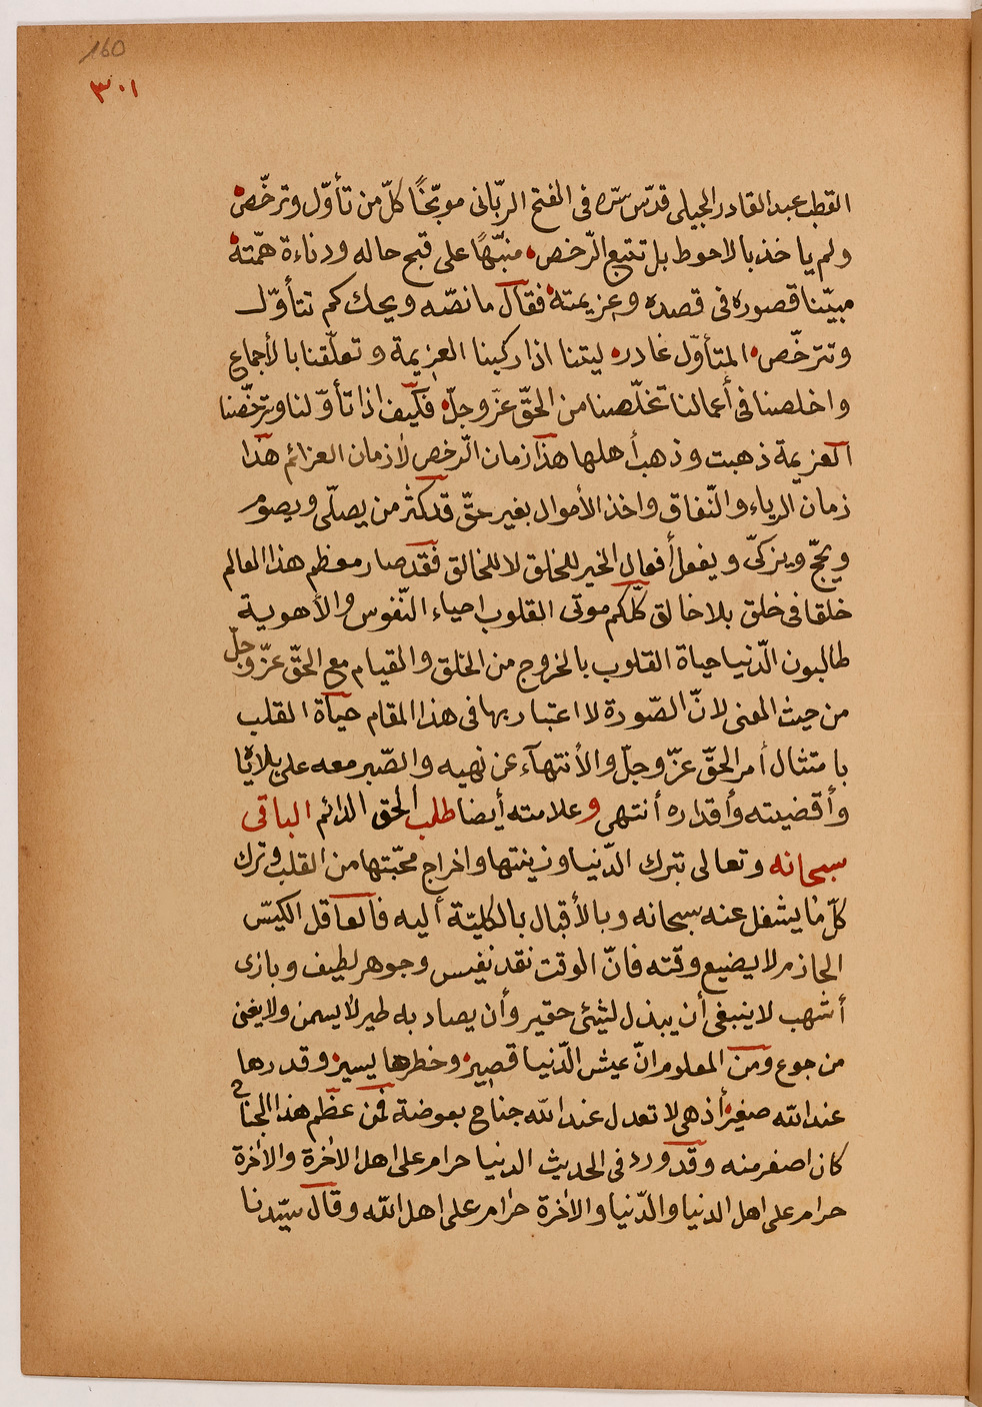 160
٣٠١
القطب عبد القادر الجيلى قدّس سرّه فى الفتح الربّانى موبّخًا كلّ من تأوّل وترخّص
ولم ياخذ بالاحوط بل تتبع الرّخص منبّهًا على قبح حاله ودناءة همّته
مبيّنا قصوره فى قصده وعزيمته فقال ما نصّه ويحك كم تتأوّل
وتترخّص المتأوّل غادر ليتنا اذا ركبنا العزيمة وتعلّقنا بالأجماع
واخلصنا فى أعمالنا تخلّصنا من الحقّ عزّ وجلّ فكيف اذا تأوّلنا وترخّصنا
العزيمة ذهبت وذهب أهلها هذا زمان الرّخص لا زمان العزائم هذا
زمان الرياء والنّفاق واخذ الأموال بغير حقّ قد كثر من يصلّى ويصوم
ويحجّ ويزكىّ ويفعل أفعال الخير للخلق لا للخالق فقد صار معظم هذا العالم
خلقا فى خلق بلا خالق كلّكم موتى القلوب احياء النّفوس والأهوية
طالبون الدّنيا حياة القلوب بالخروج من الخلق والقيام مع الحقّ عزّ وجلّ
من حيث المعنى لانّ الصّورة لا اعتبار بها فى هذا المقام حياة القلب
بامتثال أمر الحقّ عزّ وجلّ والأنتهآء عن نهيه والصّبر معه على بلاياه
وأقضيته وأقداره أنتهى وعلامته أيضا طلب الحق الدائم الباقى
سبحانه وتعالى بترك الدّنيا وزينتها واخراج محبّتها من القلب وترك
كلّ ما يشغل عنه سبحانه وبالأقبال بالكليّة أليه فالعاقل الكيّس
الحازم لا يضيع وقته فانّ الوقت نقد نفيس وجوهر لطيف وبازى
أشهب لا ينبغى أن يبذل لشئ حقير وأن يصاد به طير لا يسمن ولا يغنى
من جوع ومن المعلوم انّ عيش الدّنيا قصير وخطرها يسير وقدرها
عند الله صغير أذ هى لا تعدل عند الله جناح بعوضة فمن عظّم هذا الجناح
كان اصغر منه وقد ورد فى الحديث الدنيا حرام على اهل الاخرة والاخرة
حرام على اهل الدنيا والدّنيا والاخرة حرام على اهل الله وقال سيّدنا